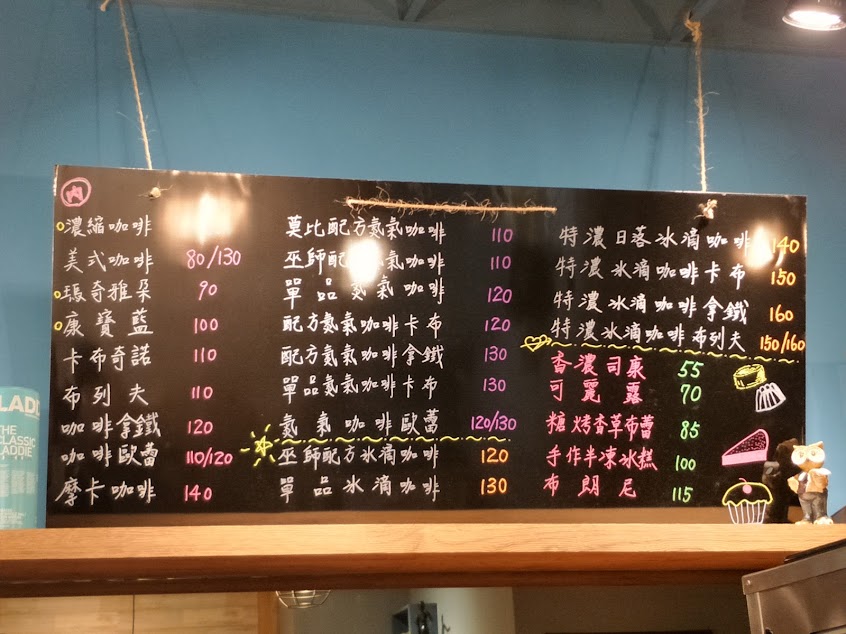 內
濃縮咖啡
美式咖啡 80/130
瑪奇雅朵 90
康寶藍 100
卡布奇諾 110
布列夫 110
咖啡拿鐵 120
咖啡歐蕾 110/120
摩卡咖啡 140
莫比配方氮氣咖啡 110
巫師配 氣咖啡 110
單品氮氣咖啡 120
配方氮氣咖啡卡布 120
配方氮氣咖啡拿鐵 130
單品氮氣咖啡卡布 130
氮氣咖啡歐蕾 120/130
巫師配方冰滴咖啡 120
單品冰滴咖啡 130
特濃日落冰滴咖啡 140
特濃冰滴咖啡卡布 150
特濃冰滴咖啡拿鐵 160
特濃冰滴咖啡布列夫 150/160
香濃司康 55
可麗露 70
糖烤香草布蕾 85
手作半凍冰糕 100
布朗尼 115
LADD
THE
CLASSIC
ADDIE